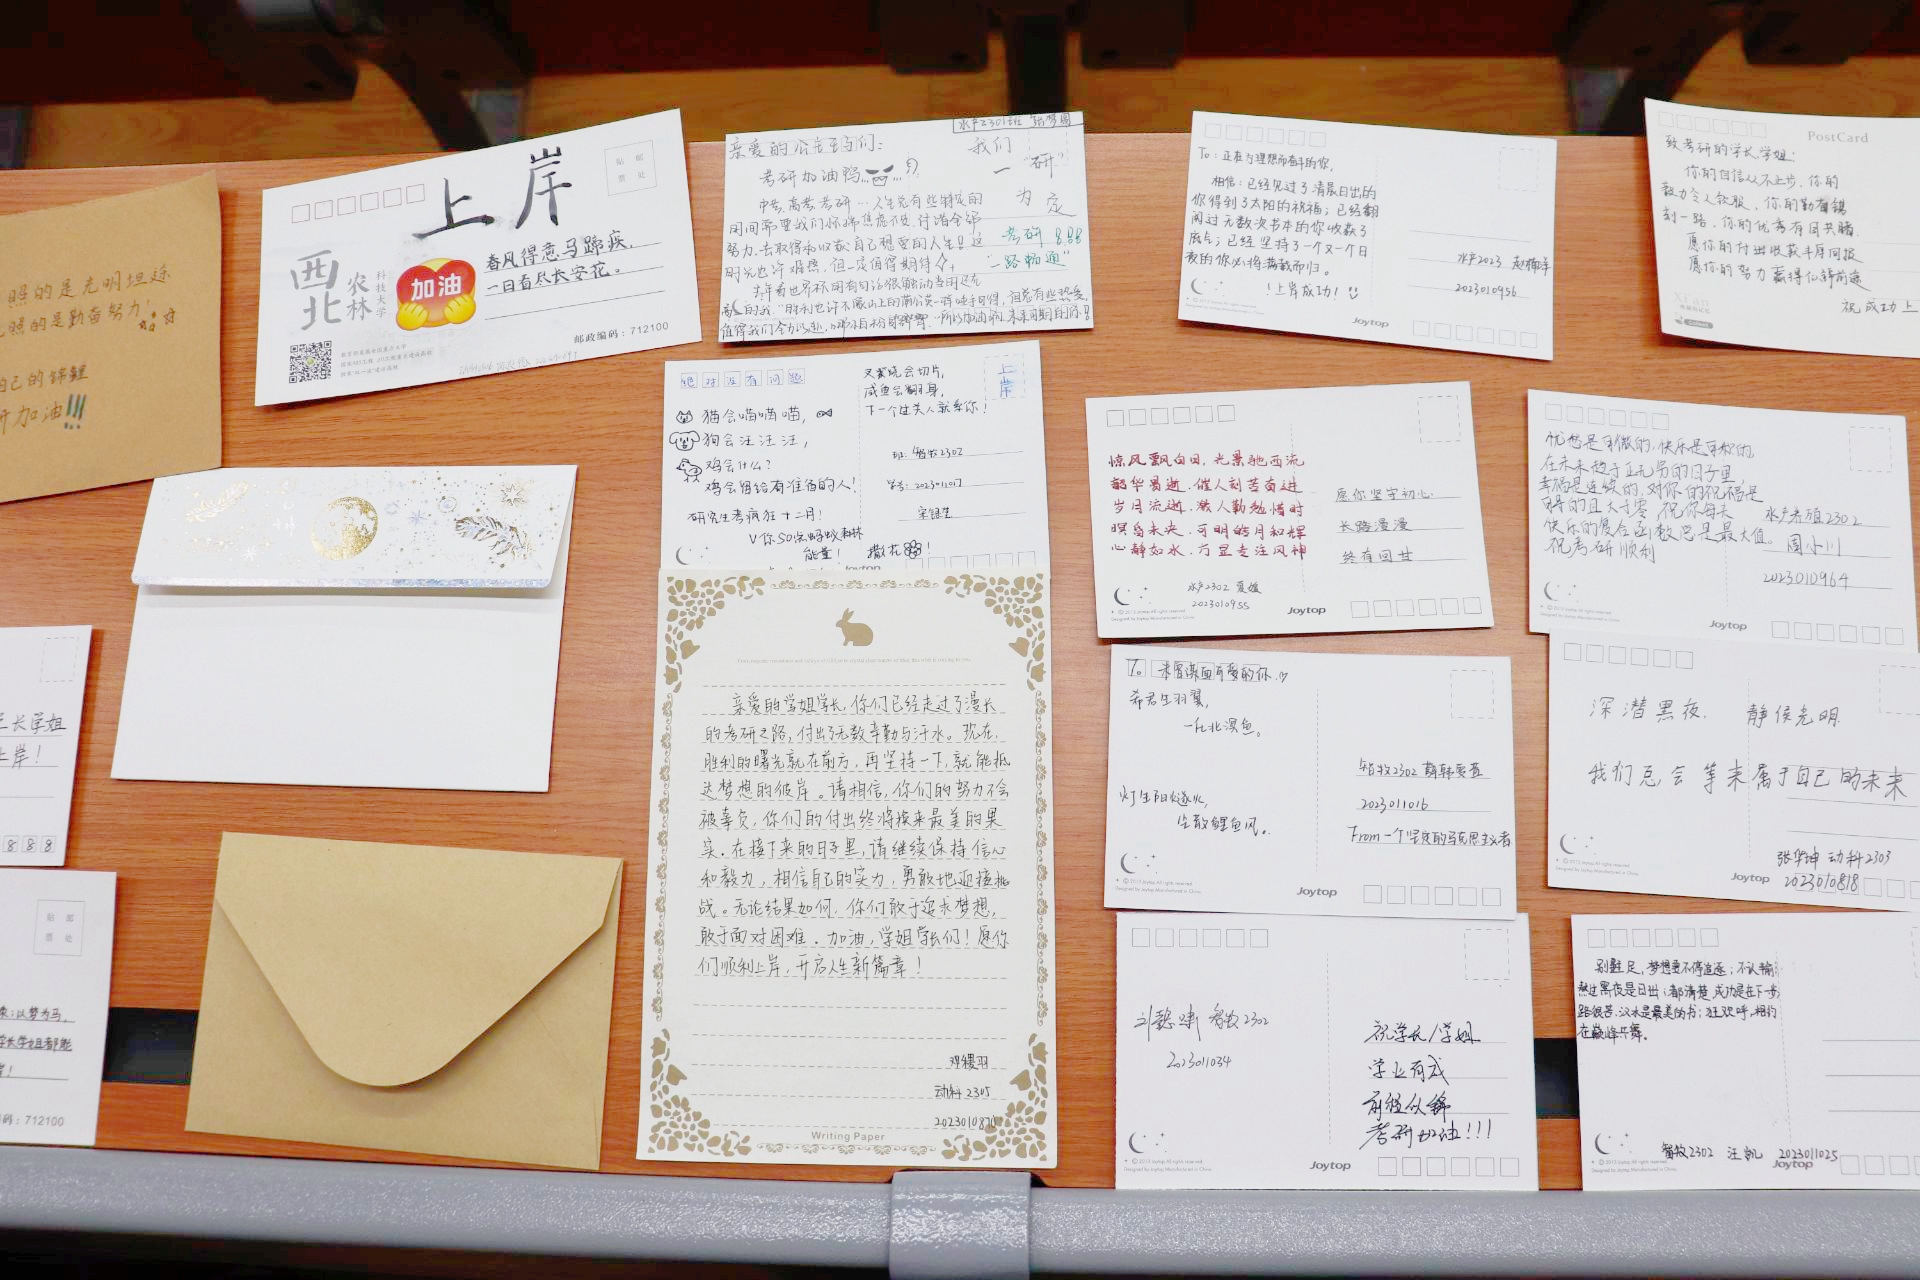 照的是光明坦途
照的是勤奋努力!
自己的锦鲤
研加油!!!
上岸
春风得意马蹄疾,
一日看尽长安花。
加油
西北
农林
科技大学
贴 邮
票 处
邮政编码：712100
水产2301班
亲爱的
考研加油鸭
我们
一"研"
为定
考研 888
"一路畅通"
中考,高考,考研…人生总有些特定的
时间需要我们
努力去取得和收获自己想要的人生!!这
时光也许难熬,但一定值得期待
To：正在为理想而奋斗的你,
相信:已经见过了清晨日出的
你得到了太阳的祝福；已经翻
阅过无数次书本的你收获了
底气；已经坚持了一个又一个日
夜的你必将满载而归。
!上岸成功!
水产2023
2023010956
Joytop
PostCard
致考研的学长学姐:
你的自信从不止步,你的
毅力令人钦服,你的勤奋镌
刻一路,你的优秀有目共睹.
愿你的付出收获丰厚回报
愿你的努力赢得似锦前途
祝成功上
绝对没有问题
上岸
猫会喵喵喵,
狗会汪汪汪,
鸡会什么?
鸡会留给有准备的人!
研究生考疯狂十二月!
V你50
能量! 撒花!
咸鱼会翻身,
下一个过关人就系你!
班:智牧2302
学号:2023011017
Joytop
惊风飘白日,光景驰西流
韶华易逝,催人刻苦奋进
岁月流逝,教人勤勉惜时
暝昏未央,可明皓月和辉
心静如水,方显专注风神
水产2302
2023010955
愿你坚守初心
长路漫漫
终有回甘
Joytop
忧愁是可微的,快乐是可积的
在未来趋于正无穷的日子里,
幸福是连续的,对你的祝福是
可导的且大于零,祝你每天
快乐的复合函数总是最大值。
祝考研顺利
水产养殖2302
周小川
2023010964
Joytop
亲爱的学姐学长,你们已经走过了漫长
的考研之路,付出了无数辛勤与汗水。现在,
胜利的曙光就在前方,再坚持一下,就能抵
达梦想的彼岸。请相信,你们的努力不会
被辜负,你们的付出终将换来最美的果
实。在接下来的日子里,请继续保持信心
和毅力,相信自己的实力,勇敢地迎接挑
战。无论结果如何,你们敢于追求梦想,
敢于面对困难。加油,学姐学长们!愿你
们顺利上岸,开启人生新篇章!
动科2305
Writing Paper
To 未曾谋面可爱的你.
希君生羽翼,
一化北溟鱼。
智牧2302
2023011016
From一个坚定的马克思主义者
Joytop
深潜黑夜, 静候光明
我们总会等来属于自己的未来
张华坤 动科2303
2023010818
Joytop
智牧2302
2023011034
祝学长/学姐
学业有成
前程似锦
考研加油!!!
Joytop
别驻足,梦想要不停追逐；不认输
熬过黑夜是日出；都清楚,成功是在下一步
路很苦,汗水是最美的书；狂欢呼,相约
在巅峰共舞。
智牧2302 汪凯 2023011025
Joytop
长学姐
上岸!
888
贴 邮
票 处
以梦为马,
学长学姐都能
码：712100